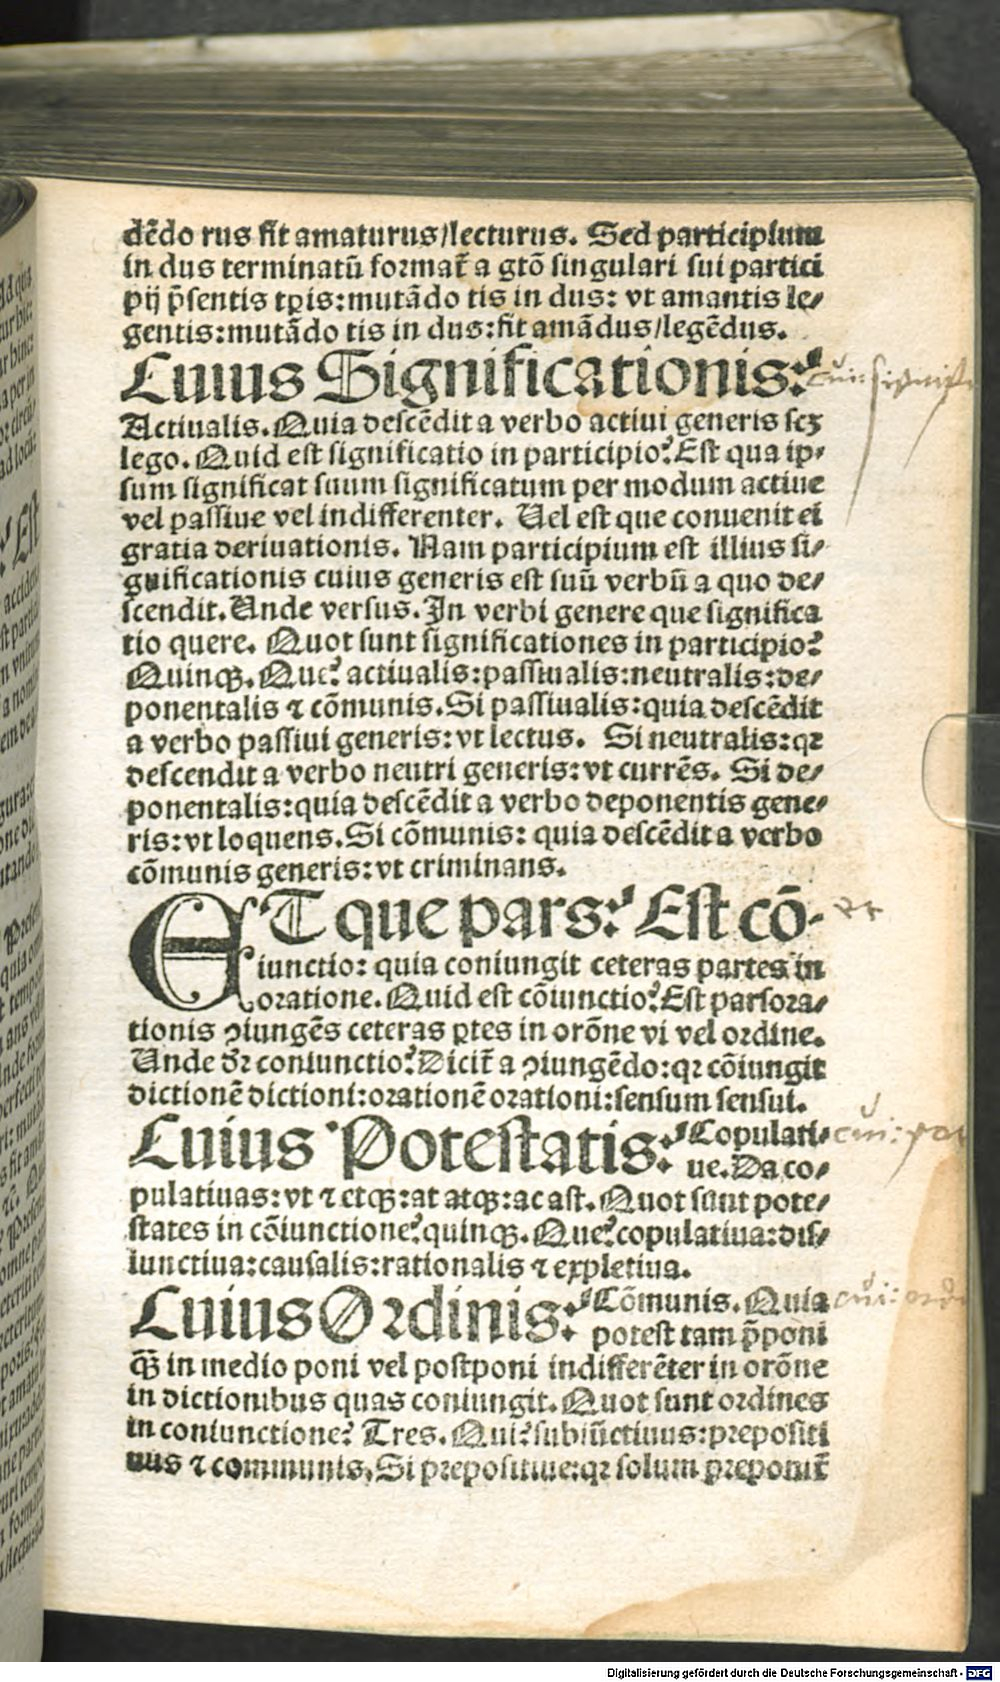 dēdo rus fit amaturus/lecturus. Sed participium
in dus terminatū format̄ a gtō singulari sui partici
pij p̄sentis tꝑis: mutādo tis in dus: vt amantis le⸗
gentis: mutādo tis in dus: fit amādus/legēdus.
Cuius Significationis?
cui: signifi
Actiualis. Quia descēdit a verbo actiui generis scꝫ
lego. Quid est significatio in participio? Est qua ip⸗
sum significat suum significatum per modum actiue
vel passiue vel indifferenter. Uel est que conuenit ei
gratia deriuationis. Nam participium est illius si⸗
gnificationis cuius generis est suū verbū a quo de⸗
scendit. Unde versus. In verbi genere que significa
tio quere. Quot sunt significationes in participio?
Quinqꝫ. Que? actiualis: passiualis: neutralis: de⸗
ponentalis ⁊ cōmunis. Si passiualis: quia descēdit
a verbo passiui generis: vt lectus. Si neutralis: qꝛ
descendit a verbo neutri generis: vt currēs. Si de⸗
ponentalis: quia descēdit a verbo deponentis gene⸗
ris: vt loquens. Si cōmunis: quia descēdit a verbo
cōmunis generis: vt criminans.
ET que pars? Est cō⸗
et
iunctio: quia coniungit ceteras partes in
oratione. Quid est cōiunctio? Est pars ora⸗
tionis ꝯiungēs ceteras ꝑtes in orōne vi vel ordine.
Unde dꝛ coniunctio? Dicit̄ a ꝯiungēdo: qꝛ cōiungit
dictionē dictioni: orationē orationi: sensum sensui.
Cuius Potestatis? Copulati⸗
cui: pot
ue. Da co⸗
pulatiuas: vt ⁊ etqꝫ: at atqꝫ: ac ast. Quot sunt pote⸗
states in cōiunctione? quinqꝫ. Que? copulatiua: dis⸗
iunctiua: causalis: rationalis ⁊ expletiua.
Cuius Ordinis? Cōmunis. Quia
cui: ordi
potest tam p̄poni
qꝫ̄ in medio poni vel postponi indifferēter in orōne
in dictionibus quas coniungit. Quot sunt ordines
in coniunctione? Tres. Qui? subiūctiuus: prepositi
uus ⁊ communis. Si prepositiue: qꝛ solum preponit̄
Digitalisierung gefördert durch die Deutsche Forschungsgemeinschaft - DFG